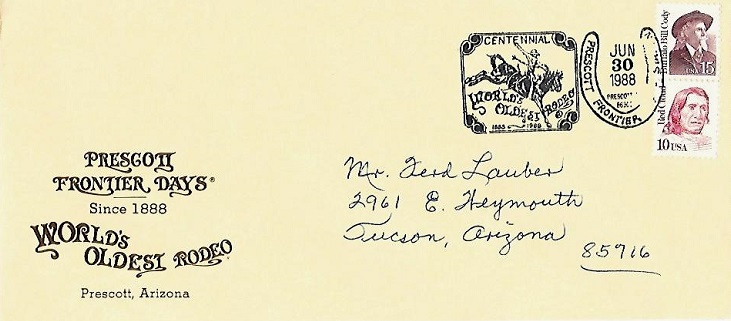 PRESCOTT
FRONTIER DAYS®
Since 1888
WORLD'S
OLDEST RODEO
Prescott, Arizona
CENTENNIAL
WORLD'S
OLDEST RODEO
1888 1988
PRESCOTT
FRONTIER
JUN
30
1988
PRESCOTT
Buffalo Bill Cody
USA 15
Red Cloud
10 USA
Mr. Ferd Lauber
2961 E. Weymouth
Tucson, Arizona
85716